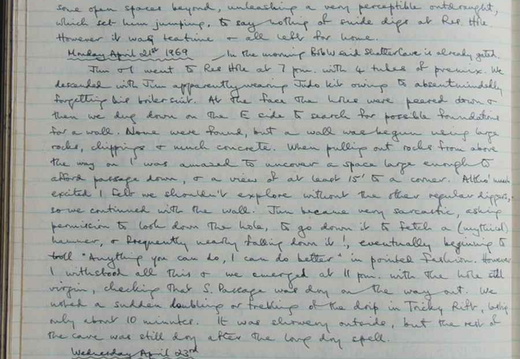 some open spaces beyond, unleashing a very perceptible outdraught,
which set him jumping, to say nothing of snide digs at Res Hole.
However it was teatime & all left for home.
Monday April 21st 1969 In the morning Bob W said Shatter Cave is already gated.
Jim & I went to Res Hole at 7 pm. with 4 tubes of premix. We
descended with Jim apparently wearing Judo kit owing to absentmindedly
forgetting his boiler suit. At the face the holes were peered down &
then we dug down on the E side to search for possible foundations
for a wall. None were found, but a wall was begun using large
rocks, chippings & much concrete. When pulling out rocks from above
the way on I was amazed to uncover a space large enough to
afford passage down, & a view of at least 15' to a corner. Altho' much
excited I felt we shouldn't explore without the other regular diggers,
so we continued with the wall. Jim became very sarcastic, asking
permission to look down the hole, to go down it to fetch a (mythical)
hammer, & frequently nearly falling down it!, eventually beginning to
troll "Anything you can do, I can do better" in pointed fashion. However
I withstood all this & we emerged at 11 pm. with the hole still
virgin, checking that S. Passage was dry on the way out. We
noted a sudden doubling or trebling of the drip in Tricky Rift, lasting
only about 10 minutes. It was showery outside, but the rest of
the cave was still dry after the long dry spell.
Wednesday April 23rd